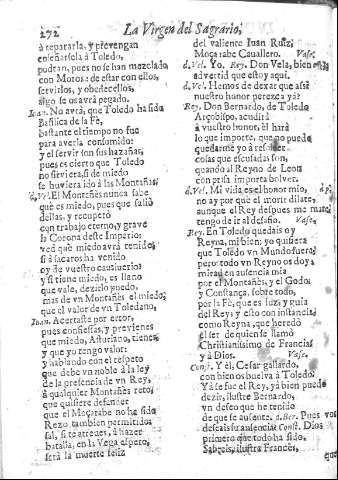 272
La Virgen del Sagrario,
à repararla, y prevengan
enseñarsela à Toledo,
pudran, pues no se han mezclado
con Moros: de estar con ellos,
servirlos, y obedecellos,
algo se os avrà pegado.
Iuan. No avrà, que Toledo ha sido
Basilica de la Fè,
bastante el tiempo no fue
para averla consumido:
y el servir son sus hazañas,
pues es cierto que Toledo
no sirviera, si de miedo
se huviera ido à las Montañas.
d. Vel. El Montañes nunca sabe
què es miedo, pues que saliò
dellas, y recuperò
con trabajo eterno, y grave
la Corona deste Imperio:
ved què miedo avrà tenido,
si à sacaros ha venido
oy de vuestro cautiverio:
y si tiene miedo, es llano
que vale, dezirlo puedo,
mas de vn Montañes el miedo,
que el valor de vn Toledano.
Iuan. Acertaste por error,
pues confiessas, y previenes
que miedo, Asturiano, tienes,
y que yo tengo valor:
y hablando con el respeto
que debe vn noble à la ley
de la presencia de vn Rey,
à qualquier Montañes reto,
que quisiere defender
que el Moçarabe no ha sido
Rezo tambien permitido:
sal, si te atreves, à hazer
batalla, en la Vega espero,
serà la muerte feliz
del valiente Iuan Ruiz,
Moçarabe Cavallero. Vase.
d. Vel. Yo. Rey. Don Vela, bien està,
advertid que estoy aqui.
d. Vel. Hemos de dexar que assi
nuestro honor perezca yà?
Rey. Don Bernardo, de Toledo
Arçobispo, acudirà
à vuestro honor, èl harà
lo que importe, que no puedo
quedarme yo à resolver
cosas que escusadas son,
quando al Reyno de Leon
con prisa importa bolver.
d. Vel. Mi vida es el honor mio, ap.
no ay por que el morir dilate,
aunque el Rey despues me mate,
tengo de ir al desafio. Vase.
Rey. En Toledo quedais oy
Reyna, mi bien: yo quisiera
que Toledo vn Mundo fuera;
pero todo vn Reyno os doy:
mirad en ausencia mia
por el Montañès, y el Godo;
y Constança, sobre todo,
por la Fè, que es luz, y guia
del Rey; y esto con instancia,
como Reyna, que heredò
el ser de quien se llamò
Christianissimo de Francia;
y à Dios. Vase.
Const. Y èl, Cesar gallardo,
con bien os buelva à Toledo.
Yà se fue el Rey, yà bien puedo
dezir, ilustre Bernardo,
vn deseo que he tenido
de que se ausente. d. Ber. Pues vos
deseais su ausencia? Const. Dios
primero que todo ha sido.
Sabreis, ilustre Francès,
que